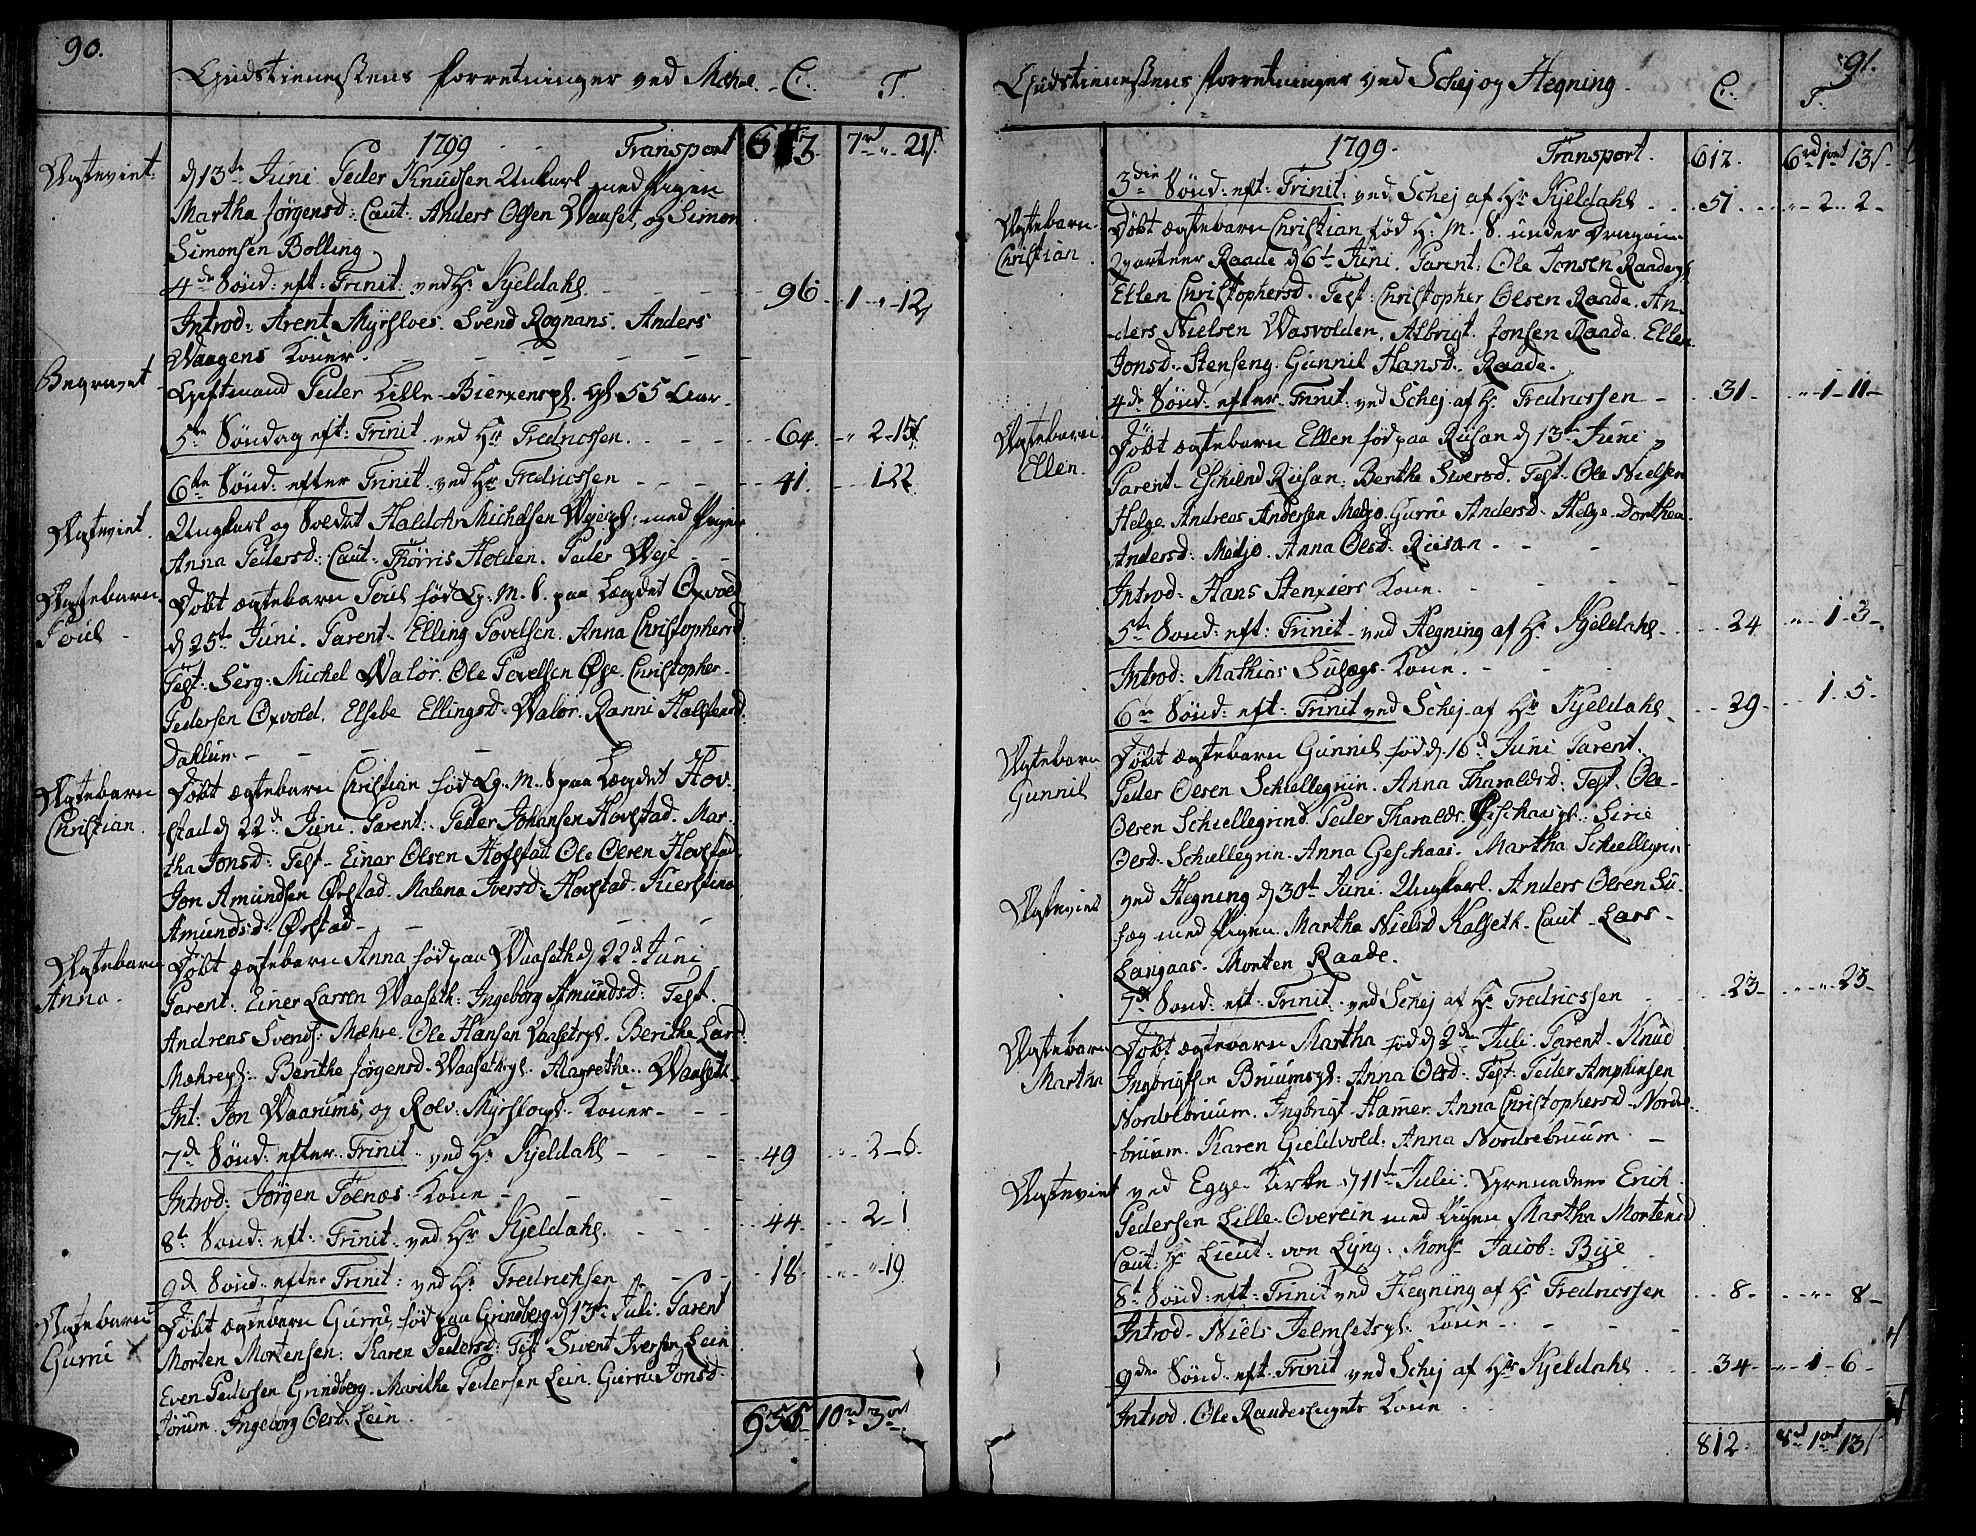 90.
Gudstienestens forretninger ved Mehre. C. T.
1799 Transport 643 7rd " 21s
Ægteviet. d 13te Juni Peder Knudsen Unkarl med Pigen
Martha Jørgensd: Caut: Anders Olsen Waaset, og Simon
Simonsen Bolling
4de Sønd: eft: Trinit: ved Hr Kjeldahl 96 1 " 12
Introd: Arent Myrsloes. Svend Rognans. Anders
Waagens Koner.
Begravet Giftmand Peder Lille-Bierxenspl. gl. 55 Aar
5te Søndag eft: Trinit ved Hr Fredricssen. 64. " 2-15
6te Sønd: efter Trinit ved Hr Fredricssen 41. 1 22
Ægteviet. Ungkarl og Soldat Haldohr Michelsen Wejespl: med Pigen
Anna Pedersd: Caut: Thørris Holden. Peder Weje
Ægtebarn Døbt ægtebarn Poul fød G. M. S. paa Lægdet Oxvold
Poul d 25te Juni. Parent- Elling Povelsen. Anna Christophersd
Test: Serg: Michel Walør. Ole Povelsen Øye. Christopher
Pedersen Oxvold. Elsebe Ellingsd-Walør. Ranni Halstensd:
Dahlum
Ægtebarn Døbt ægtebarn Christian fød G. M. S paa Lægdet Hov-
Christian. stad d 22d Juni. Parent: Peder Johansen Hovstad. Mar-
tha Jonsd: Test- Einar Olsen Hofstad Ole Olsen Hovstad
Jon Amundsen Ørstad. Malena Iversd: Hovstad. Kierstina
Amundsd: Ørstad
Ægtebarn Døbt ægtebarn Anna fød paa Waaseth d 22d Juni
Anna. Parent: Einer Larsen Waaseth: Ingeborg Amundsd: Test.
Andreas Svends: Mæhre. Ole Hansen Vaasetspl. Berithe Larsd:
Mæhrepl: Berithe Jørgensd. Waasethspl. Magrethe Waaseth
Int: Jon Waarums, og Rolv: Myrstopl. Koner
7de Sønd: efter Trinit ved Hr Kjeldahl 49 " 2-6.
Introd: Jørgen Toenæs Kone
8te Sønd: eft: Trinit: ved Hr Kjeldahl. 44 2-1
9de Sønd: efter Trinit: ved Hr Fredrichsen 18. " 19
Ægtebarn Døbt ægtebarn Gurru, fød paa Grindberg d 13te Juli. Parent
Gurru Morten Mortensen: Karen Pedersd: Test Sivert Iversen Lein
Even Pedersen Grindberg. Marithe Pedersen Lein. Gurru Jonsd:
Jørum. Ingeborg Olsd. Lein. 955 10rd 3ort
91.
Gudstienestens forretninger ved Schej og Hegning C. T.
1799. Transport. 612. 6rd 1ort 13s.
3die Sønd: eft: Trinit: ved Schej af Hr Kjeldahl 51 " 2 " 2
Ægtebarn Døbt ægtebarn Christian fød G: M. S. under Dragon
Christian. Qvarteer Raade d 6te Juni. Parent: Ole Jonsen Raadepl
Ellen Christophersd. Test: Christopher Olsen Raade. An-
ders Nielsen Wasvolden. Albrigt. Jonsen Raade. Ellen
Jonsd. Stenseng. Gunnil Hansd. Raade.
4de Sønd. efter Trinit ved Schej af Hr Fredricssen 31 " 1-11
Ægtebarn Døbt ægtebarn Ellen fød paa Riisan d 13te Juni
Ellen. Parent Eschild Riisan: Berthe Siversd. Test. Ole Nielsen
Helge. Andreas Andersen Medjo. Gurru Andersd. Helge. Dorthea
Andersd. Medjo. Anna Olsd. Riisan
Introd: Hans Stenxiers Kone.
5te Sønd: eft: Trinit ved Hegning af Hr Kjeldahl 24 " 1-3
Introd: Mathias Sulægs. Kone.
6te Sønd: eft: Trinit ved Schej af Hr Kjeldahl 29 1-5
Ægtebarn Døbt ægtebarn Gunnil fød d 16d Juni Parent.
Gunnil Peder Olsen Schiellegrin. Anna Tharaldsd. Test. Ole
Olsen Schiellegrind. Peder Tharalds. Geschaaspl: Sirie
Olsd. Schiellegrin. Anna Geschaas. Martha Schiellegrin
Ægteviet ved Hegning d 30te Juni. Ungkarl. Anders Olsen Su-
læg med Pigen. Martha Nielsd Kalseth. Caut Lars
Langaas. Morten Raade.
7de Sønd: eft: Trinit. ved Schej af Hr Fredricssen 23 " 23
Ægtebarn Døbt ægtebarn Martha fød d 2den Juli. Parent. Knud
Martha Ingbrigtsen Bruumspl: Anna Olsd: Test: Peder Amphinsen
Nordrebruum. Ingbrigt Hamer. Anna Christophersd. Nordre-
bruum. Karen Gieldvold. Anna Nordrebruum.
Ægteviet ved Egge Kirke d 11te Julii. Grenadeer Erich
Pedersen Lille-Overein med Pigen Martha Mortensd
Caut: Hr Lieut: von Lyng. Monsr Jacob: Bye
8te Sønd: eft: Trinit ved Hegning af Hr Fredricssen 8 " 8
Introd. Niels Jelmsetspl: Kone
9de Sønd: eft: Trinit ved Schej af Hr Kjeldahl 34 " 1-6
Introd. Ole Raades Kone.
812. 8rd 1ort 13s